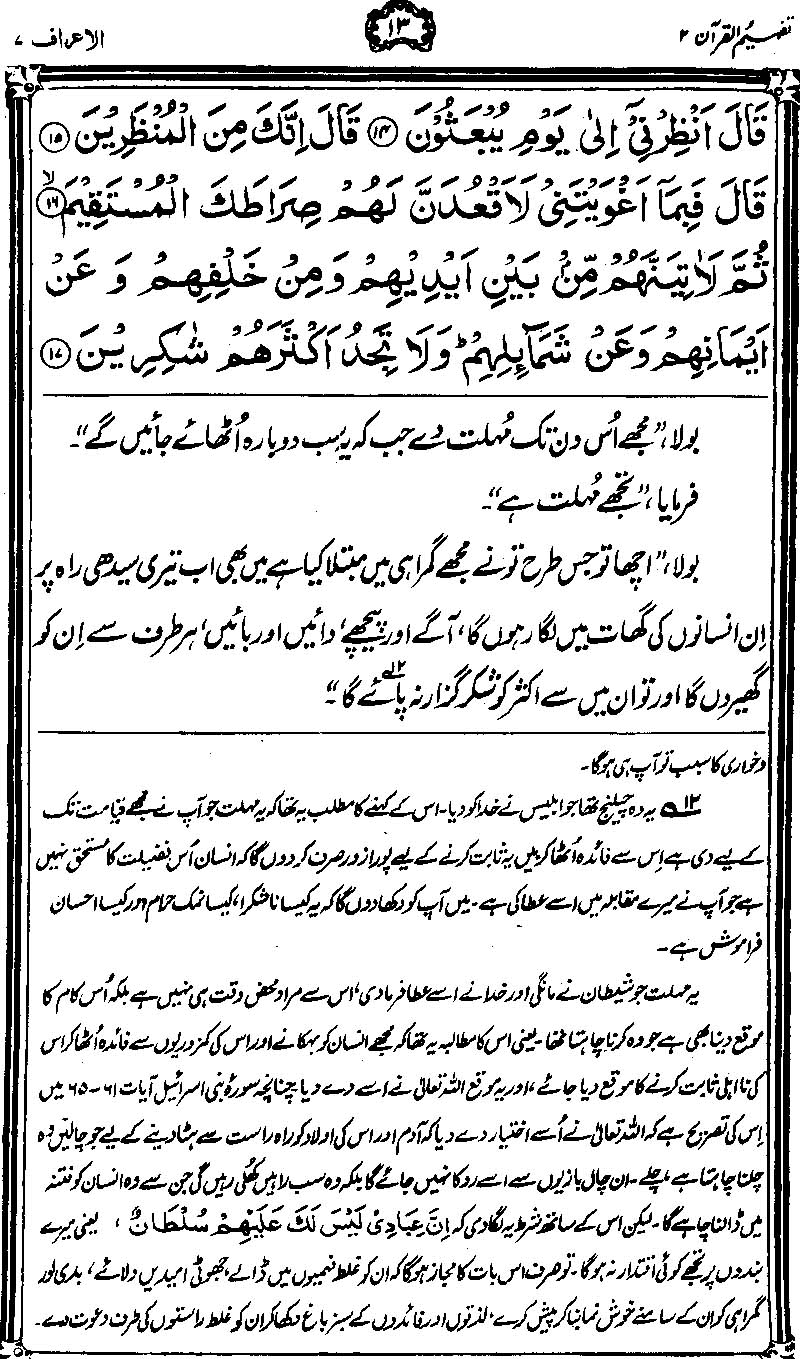 تفہیم القرآن ۲
۱۳
الاعراف ۷
قَالَ اَنْظِرْنِیْۤ اِلٰی یَوْمِ یُبْعَثُوْنَ ۝۱۴ قَالَ اِنَّکَ مِنَ الْمُنْظَرِیْنَ ۝۱۵
قَالَ فَبِمَاۤ اَغْوَیْتَنِیْ لَاَقْعُدَنَّ لَهُمْ صِرَاطَکَ الْمُسْتَقِیْمَ ۝۱۶ۙ
ثُمَّ لَاٰتِیَنَّهُمْ مِّنْۢ بَیْنِ اَیْدِیْهِمْ وَمِنْ خَلْفِهِمْ وَ عَنْ
اَیْمَانِهِمْ وَعَنْ شَمَآئِلِهِمْ ؕ وَلَا تَجِدُ اَکْثَرَهُمْ شٰکِرِیْنَ ۝۱۷
بولا، ”مجھے اُس دن تک مُہلت دے جب کہ یہ سب دوبارہ اُٹھائے جائیں گے“۔
فرمایا، ”تجھے مُہلت ہے“۔
بولا، ”اچھا تو جس طرح تو نے مجھے گمراہی میں مبتلا کیا ہے میں بھی اب تیری سیدھی راہ پر
اِن انسانوں کی گھات میں لگا رہوں گا، آگے اور پیچھے، دائیں اور بائیں، ہر طرف سے اِن کو
گھیروں گا اور تو ان میں سے اکثر کو شکر گزار نہ پائے گا“۔ ۱۲
و خواری کا سبب تو آپ ہی ہوگا۔
۱۲ یہ وہ چیلنج تھا جو ابلیس نے خدا کو دیا۔ اس کے کہنے کا مطلب یہ تھا کہ یہ مہلت جو آپ نے مجھے قیامت تک
کے لیے دی ہے اِس سے فائدہ اُٹھا کر میں یہ ثابت کرنے کے لیے پورا زور صرف کر دوں گا کہ انسان اُس فضیلت کا مستحق نہیں
ہے جو آپ نے میرے مقابلہ میں اسے عطا کی ہے۔ میں آپ کو دکھا دوں گا کہ یہ کیسا ناشکرا، کیسا نمک حرام اور کیسا احسان
فراموش ہے۔
یہ مہلت جو شیطان نے مانگی اور خدا نے اسے عطا فرما دی، اس سے مراد محض وقت ہی نہیں ہے بلکہ اُس کام کا
موقع دینا بھی ہے جو وہ کرنا چاہتا تھا۔ یعنی اس کا مطالبہ یہ تھا کہ مجھے انسان کو بہکانے اور اس کی کمزوریوں سے فائدہ اُٹھا کر اس
کی نااہلی ثابت کرنے کا موقع دیا جائے، اور یہ موقع اللہ تعالیٰ نے اسے دے دیا چنانچہ سورۂ بنی اسرائیل آیات ۶۱-۶۵ میں
اِس کی تصریح ہے کہ اللہ تعالیٰ نے اُسے اختیار دے دیا کہ آدم اور اس کی اولاد کو راہ راست سے ہٹا دینے کے لیے جو چالیں وہ
چلنا چاہتا ہے، چلے۔ ان چال بازیوں سے اسے روکا نہیں جائے گا بلکہ وہ سب راہیں کھلی رہیں گی جن سے وہ انسان کو فتنہ
میں ڈالنا چاہے گا۔ لیکن اس کے ساتھ شرط یہ لگا دی کہ اِنَّ عِبَادِیْ لَیْسَ لَکَ عَلَیْهِمْ سُلْطَانٌ، یعنی میرے
بندوں پر تجھے کوئی اقتدار نہ ہوگا۔ تو صرف اس بات کا مجاز ہوگا کہ ان کو غلط فہمیوں میں ڈالے، جھوٹی امیدیں دلائے، بدی اور
گمراہی کو ان کے سامنے خوش نما بنا کر پیش کرے، لذتوں اور فائدوں کے سبز باغ دکھا کر ان کو غلط راستوں کی طرف دعوت دے۔